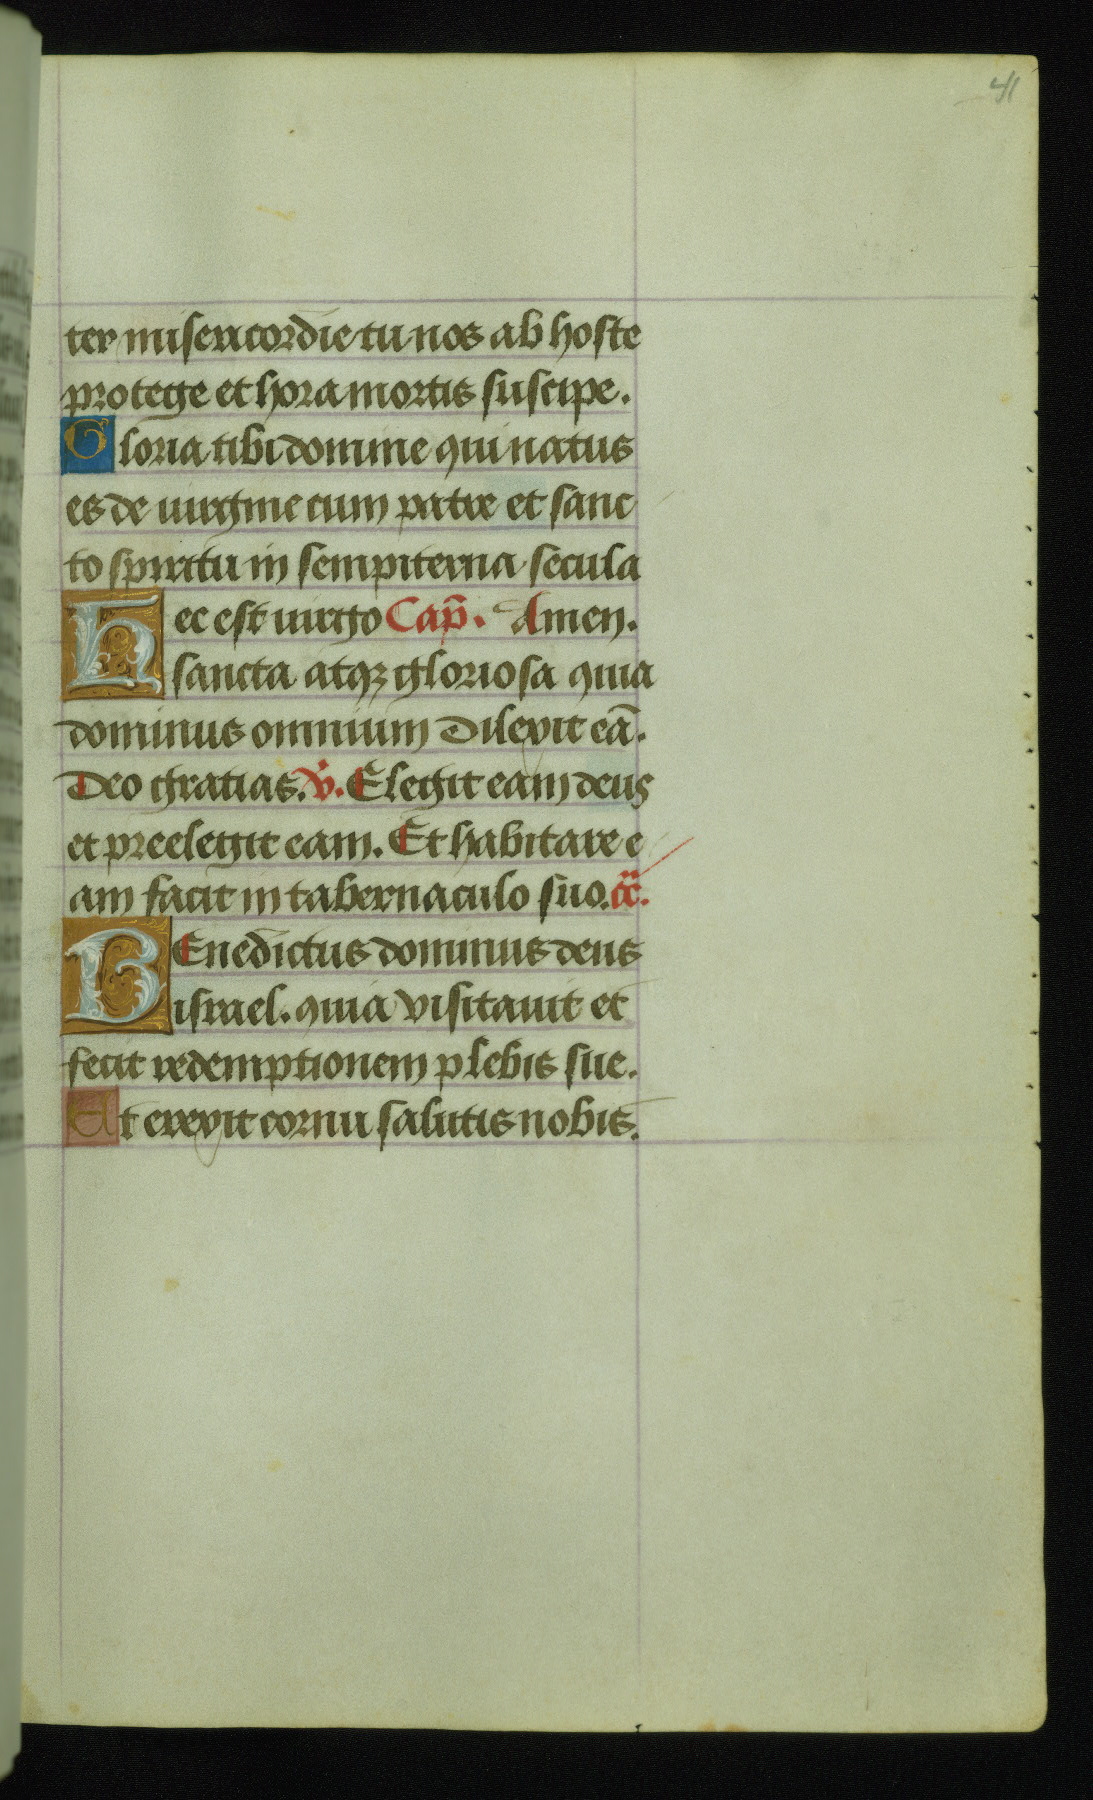 41
ter misericordie tu nos ab hoste
protege et hora mortis suscipe.
Gloria tibi domine qui natus
es de uirgine cum patre et sanc
to spiritu in sempiterna secula
Hec est uirgo Cap̄. Amen.
sancta atqꝫ gloriosa quia
dominus omnium dilexit eā.
Deo gratias. v̇. Elegit eam deus
et preelegit eam. Et habitare e
am facit in tabernaculo suo.
BEnedictus dominus deus
israel. quia visitauit et
fecit redemptionem plebis sue.
Et erexit cornu salutis nobis.